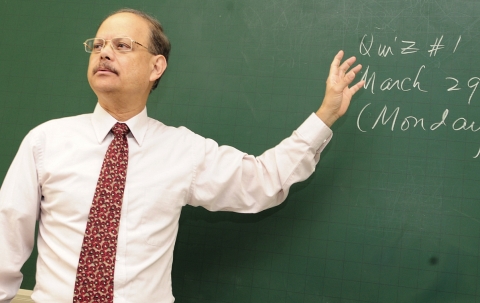 Quiz #1
March 29
(Monday